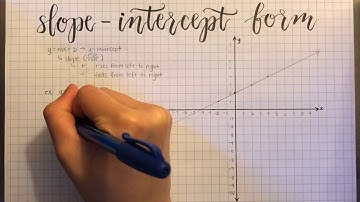 slope-intercept form
y=mx+b → y-intercept
↳ slope (rise/run)
↳ + rises from left to right
- falls from left to right
ex. y
y
x